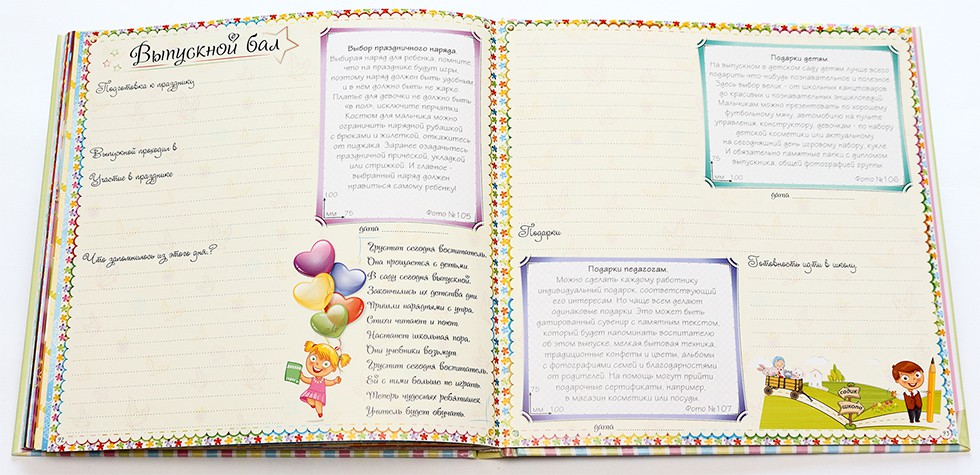 Выпускной бал
Подготовка к празднику
Выпускной проходил в
Участие в празднике
Что запомнилось из этого дня?
Выбор праздничного наряда.
Выбирая наряд для ребенка, помните,
что на празднике будут игры,
поэтому наряд должен быть удобным
и в нем должно быть не жарко.
Платье для девочки не должно быть
«в пол», исключите перчатки.
Костюм для мальчика можно
ограничить нарядной рубашкой
с брюками и жилеткой, откажитесь
от пиджака. Заранее озадачьтесь
праздничной прической, укладкой
или стрижкой. И главное -
выбранный наряд должен
нравиться самому ребенку!
100
мм 75 Фото №105
дата
Грустит сегодня воспитатель.
Она прощается с детьми.
В саду сегодня выпускной.
Закончились их детства дни.
Пришли нарядными с утра.
Стихи читают и поют.
Настанет школьная пора.
Они учебники возьмут.
Грустит сегодня воспитатель.
Ей с ними больше не играть.
Теперь чудесных ребятишек
Учитель будет обучать.
Подарки детям.
На выпускном в детском саду детям лучше всего
подарить что-нибудь познавательное и полезное.
Здесь выбор велик - от школьных канцтоваров
до красивых и познавательных энциклопедий.
Мальчикам можно презентовать по хорошему
футбольному мячу, автомобилю на пульте
управления, конструктору, девочкам - по набору
детской косметики или актуальному
на сегодняшний день игровому набору, кукле.
И обязательно памятные папки с дипломом
выпускника, общей фотографией группы.
75
мм 100 Фото №106
дата
Подарки
Готовность идти в школу
Подарки педагогам.
Можно сделать каждому работнику
индивидуальный подарок, соответствующий
его интересам. Но чаще всем делают
одинаковые подарки. Это может быть
датированный сувенир с памятным текстом,
который будет напоминать воспитателю
об этом выпуске, мелкая бытовая техника,
традиционные конфеты и цветы, альбомы
с фотографиями семей и благодарностями
от родителей. На помощь могут прийти
подарочные сертификаты, например,
в магазин косметики или посуды.
75
мм 100 Фото №107
дата
садик
школа